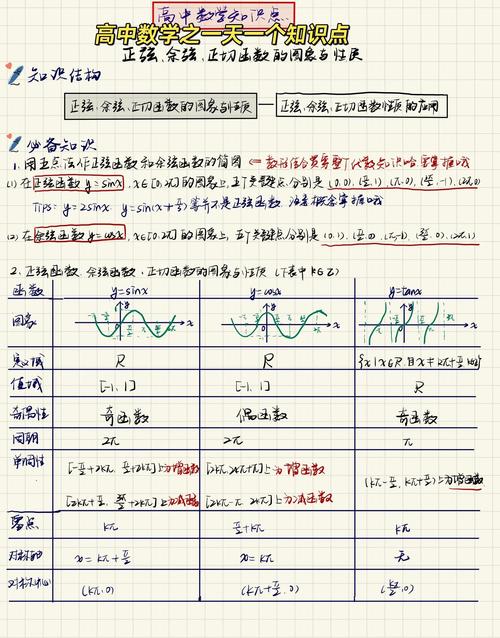 高中数学知识点
高中数学之一天一个知识点
正弦、余弦、正切函数的图象与性质
知识结构
正弦、余弦、正切函数的图象与性质 正弦、余弦、正切函数性质的应用
必备知识
1. 用五点法作正弦函数和余弦函数的简图
(1) 在正弦函数 y=sinx, x∈[0,2π]的图象上, 五个关键点分别是 (0,0), (π/2,1), (π,0), (3π/2,-1), (2π,0)
TIPS: y=2sinx y=sin(x+π/3)等并不是正弦函数
(2) 在余弦函数 y=cosx, x∈[0,2π]的图象上, 五个关键点分别是 (0,1), (π/2,0), (π,-1), (3π/2,0), (2π,1)
2. 正弦函数、余弦函数、正切函数的图象与性质 (下表中 k∈Z)
函数 y=sinx y=cosx y=tanx
图象
定义域 R R {x|x∈R, 且 x≠kπ+π/2, k∈Z}
值域 [-1, 1] [-1, 1] R
奇偶性 奇函数 偶函数 奇函数
周期 2π 2π π
单调性
[-π/2+2kπ, π/2+2kπ]上为增函数 [2kπ-π, 2kπ]上为增函数
(kπ-π/2, kπ+π/2)上为增函数
零点 kπ π/2+kπ kπ
对称轴 x=kπ+π/2 x=kπ 无
对称中心 (kπ,0) (kπ+π/2,0) (kπ/2,0)